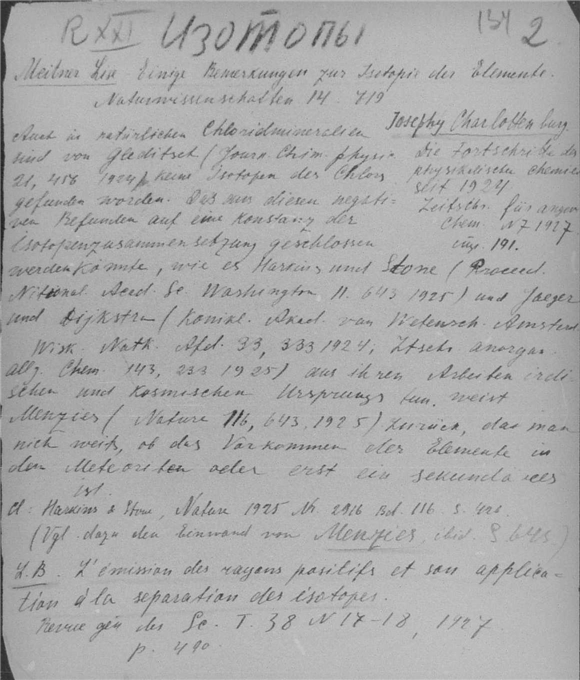 R XXI Изотопы 2
Meitner Lise Einige Bemerkungen zur Isotopie der Elemente.
Naturwissenschaften 14 719
Josephy Charlottenburg
Die Fortschritte der
physikalische Chemie
seit 1924
Zeitschr. für angew
Chem. N 7 1927
стр. 191.
Auch in natürlichen Chloridmineralien
sind von Gleditsch (Journ. Chim. physiq
21, 456 1924) keine Isotopen des Chlors
gefunden worden. Das aus diesen negati-
ven Befunden auf eine Konstanz der
Isotopenzusammensetzung geschlossen
werden könnte, wie es Harkins und Stone (Proceed.
National Acad. Sc. Washington 11. 643 1925) und Jaeger
und Dijkstra (Koninl. Akad. van Wetensch. Amsterd.
Wisk. Nath. Afd. 33, 333 1924, Ztschr anorgan.
allg. Chem. 143, 233 1925) aus ihren Arbeiten irdi-
schen und kosmischen Ursprungs tun, weist
Menzies (Nature 116, 643, 1925) zurück, das man
nich weis, ob das Vorkommen der Elemente in
den Meteoriten oder erst ein sekundäres
ist.
Cl: Harkins & Stone, Nature 1925 Nr. 2916 Bd. 116 S. 426
(Vgl. dazu den Einwand von Menzies, ibid. S. 643)
L.B. L'émission des rayons positifs et son applica-
tion à la separation des isotopes.
Revue gén des Sc. T. 38 N 17-18, 1927
p. 490